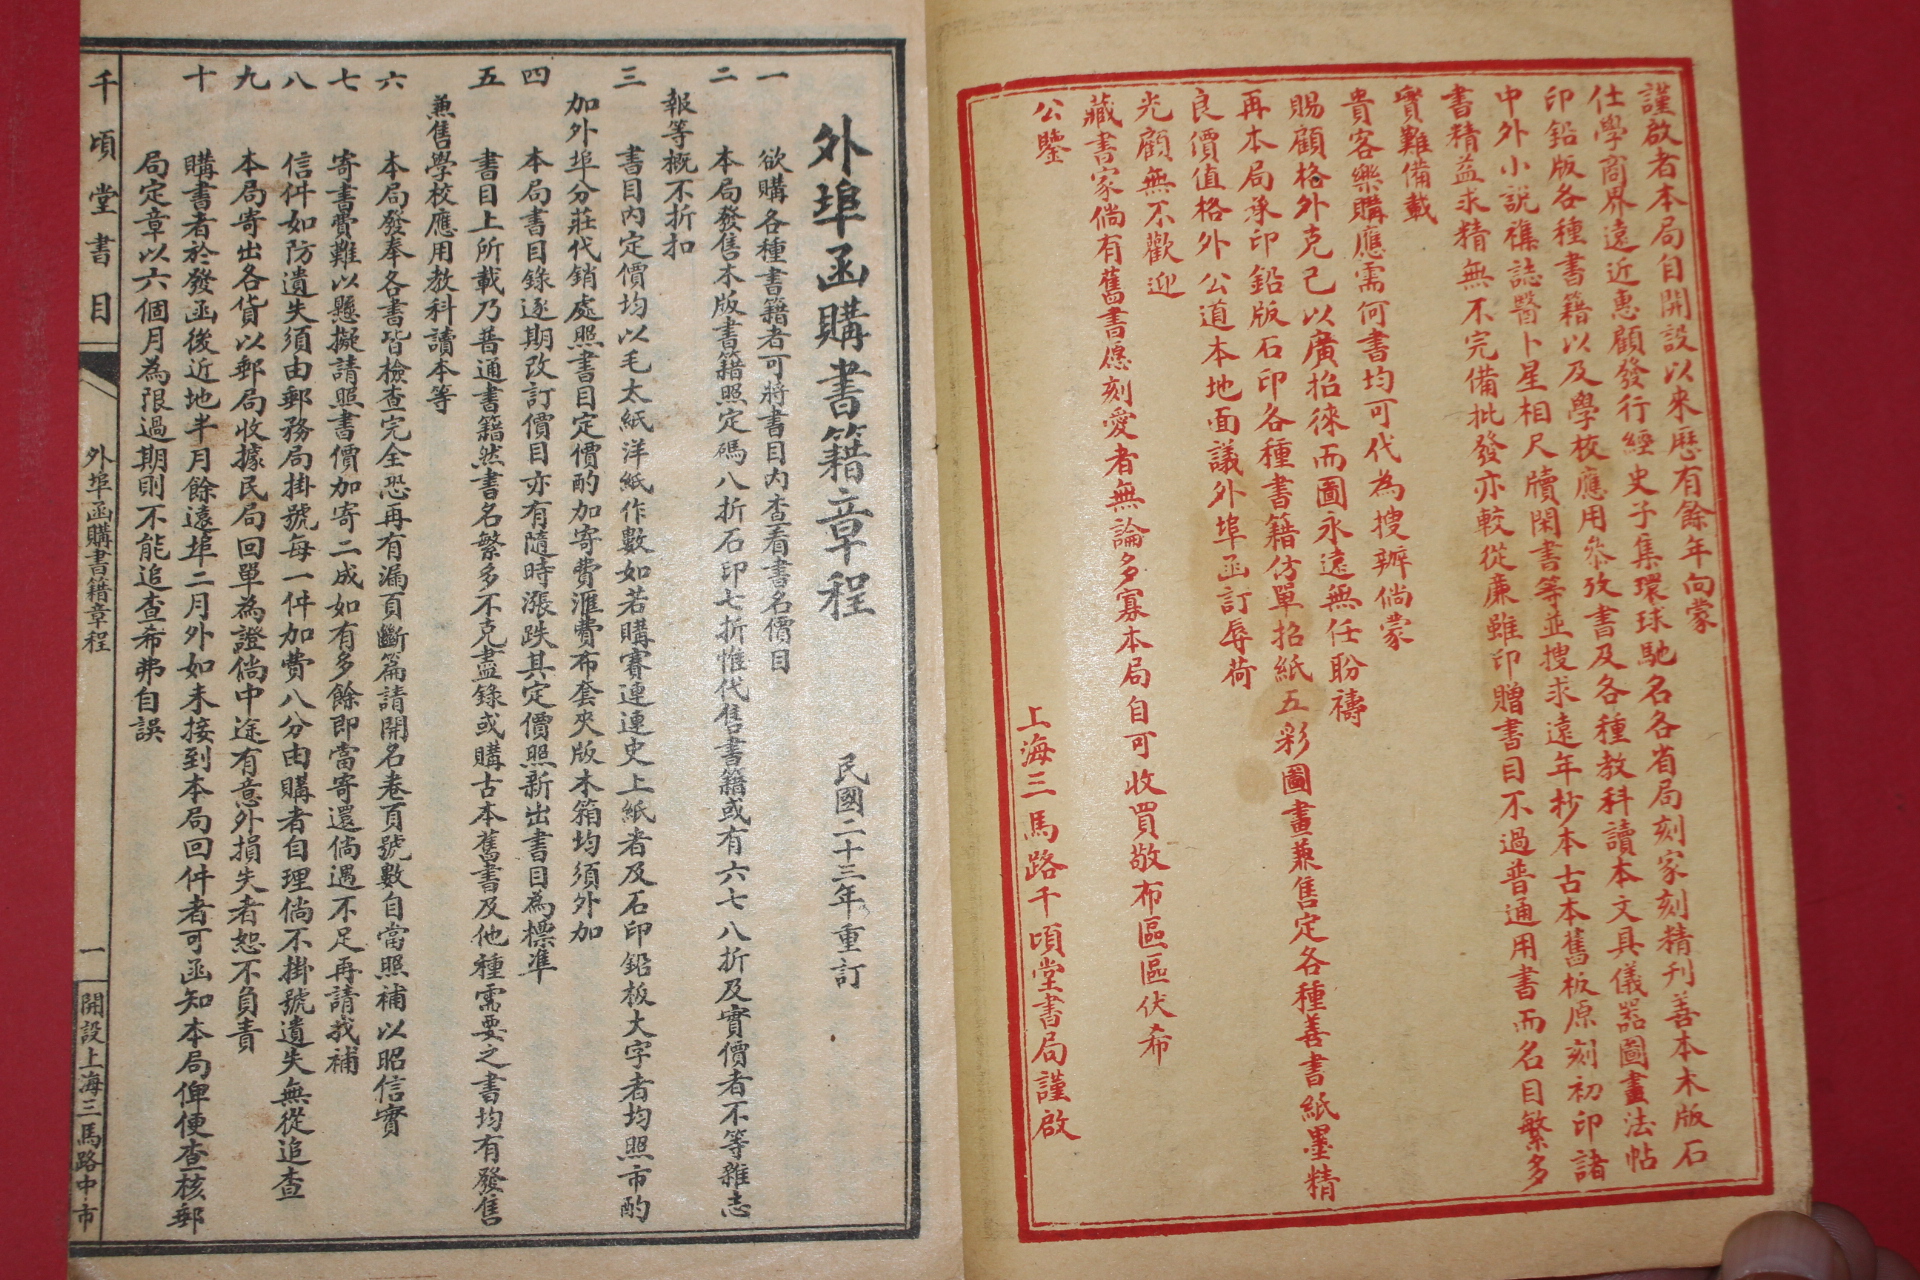 謹啟者本局自開設以來歷有餘年向蒙
仕學商界遠近惠顧發行經史子集環球馳名各省局刻家刻精刊善本木版石
印鉛版各種書籍以及學校應用叅攷書及各種教科讀本文具儀器圖畫法帖
中外小説襍誌醫卜星相尺牘閑書等並搜求遠年杪本古本舊板原刻初印諸
書精益求精無不完備批發亦較從廉雖印贈書目不過普通用書而名目繁多
實難備載
貴客樂購應需何書均可代為搜辦倘蒙
賜顧格外克己以廣招徠而圖永遠無任盼禱
再本局承印鉛版石印各種書籍仿單招紙五彩圖畫兼售定各種善書紙墨精
良價值格外公道本地面議外埠函訂辱荷
光顧無不歡迎
藏書家倘有舊書愿刻愛者無論多寡本局自可收買敬布區區伏希
公鑒
上海三馬路千頃堂書局謹啟
外埠函購書籍章程
民國二十三年重訂
一 欲購各種書籍者可將書目內查看書名價目
二 本局發售木版書籍照定碼八折石印七折惟代售書籍或有六七八折及實價者不等雜志
報等概不折扣
三 書目內定價均以毛太紙洋紙作數如若購賽連連史上紙者及石印鉛板大字者均照市酌
加外埠分莊代銷處照書目定價酌加寄費滙費布套夾版木箱均須外加
四 本局書目錄逐期改訂價目亦有隨時漲跌其定價照新出書目為標準
五 書目上所載乃普通書籍然書名繁多不克盡錄或購古本舊書及他種需要之書均有發售
兼售學校應用教科讀本等
六 本局發奉各書皆檢查完全恐再有漏頁斷篇請開名卷頁號數自當照補以昭信實
七 寄書費難以懸擬請照書價加寄二成如有多餘即當寄還倘遇不足再請找補
八 信件如防遺失須由郵務局掛號每一件加費八分由購者自理倘不掛號遺失無從追查
九 本局寄出各貨以郵局收據民局回單為證倘中途有意外損失者恕不負責
十 購書者於發函後近地半月餘遠埠二月外如未接到本局回件者可函知本局俾便查核郵
局定章以六個月為限過期則不能追查希弗自誤
千頃堂書目
外埠函購書籍章程
一
開設上海三馬路中市